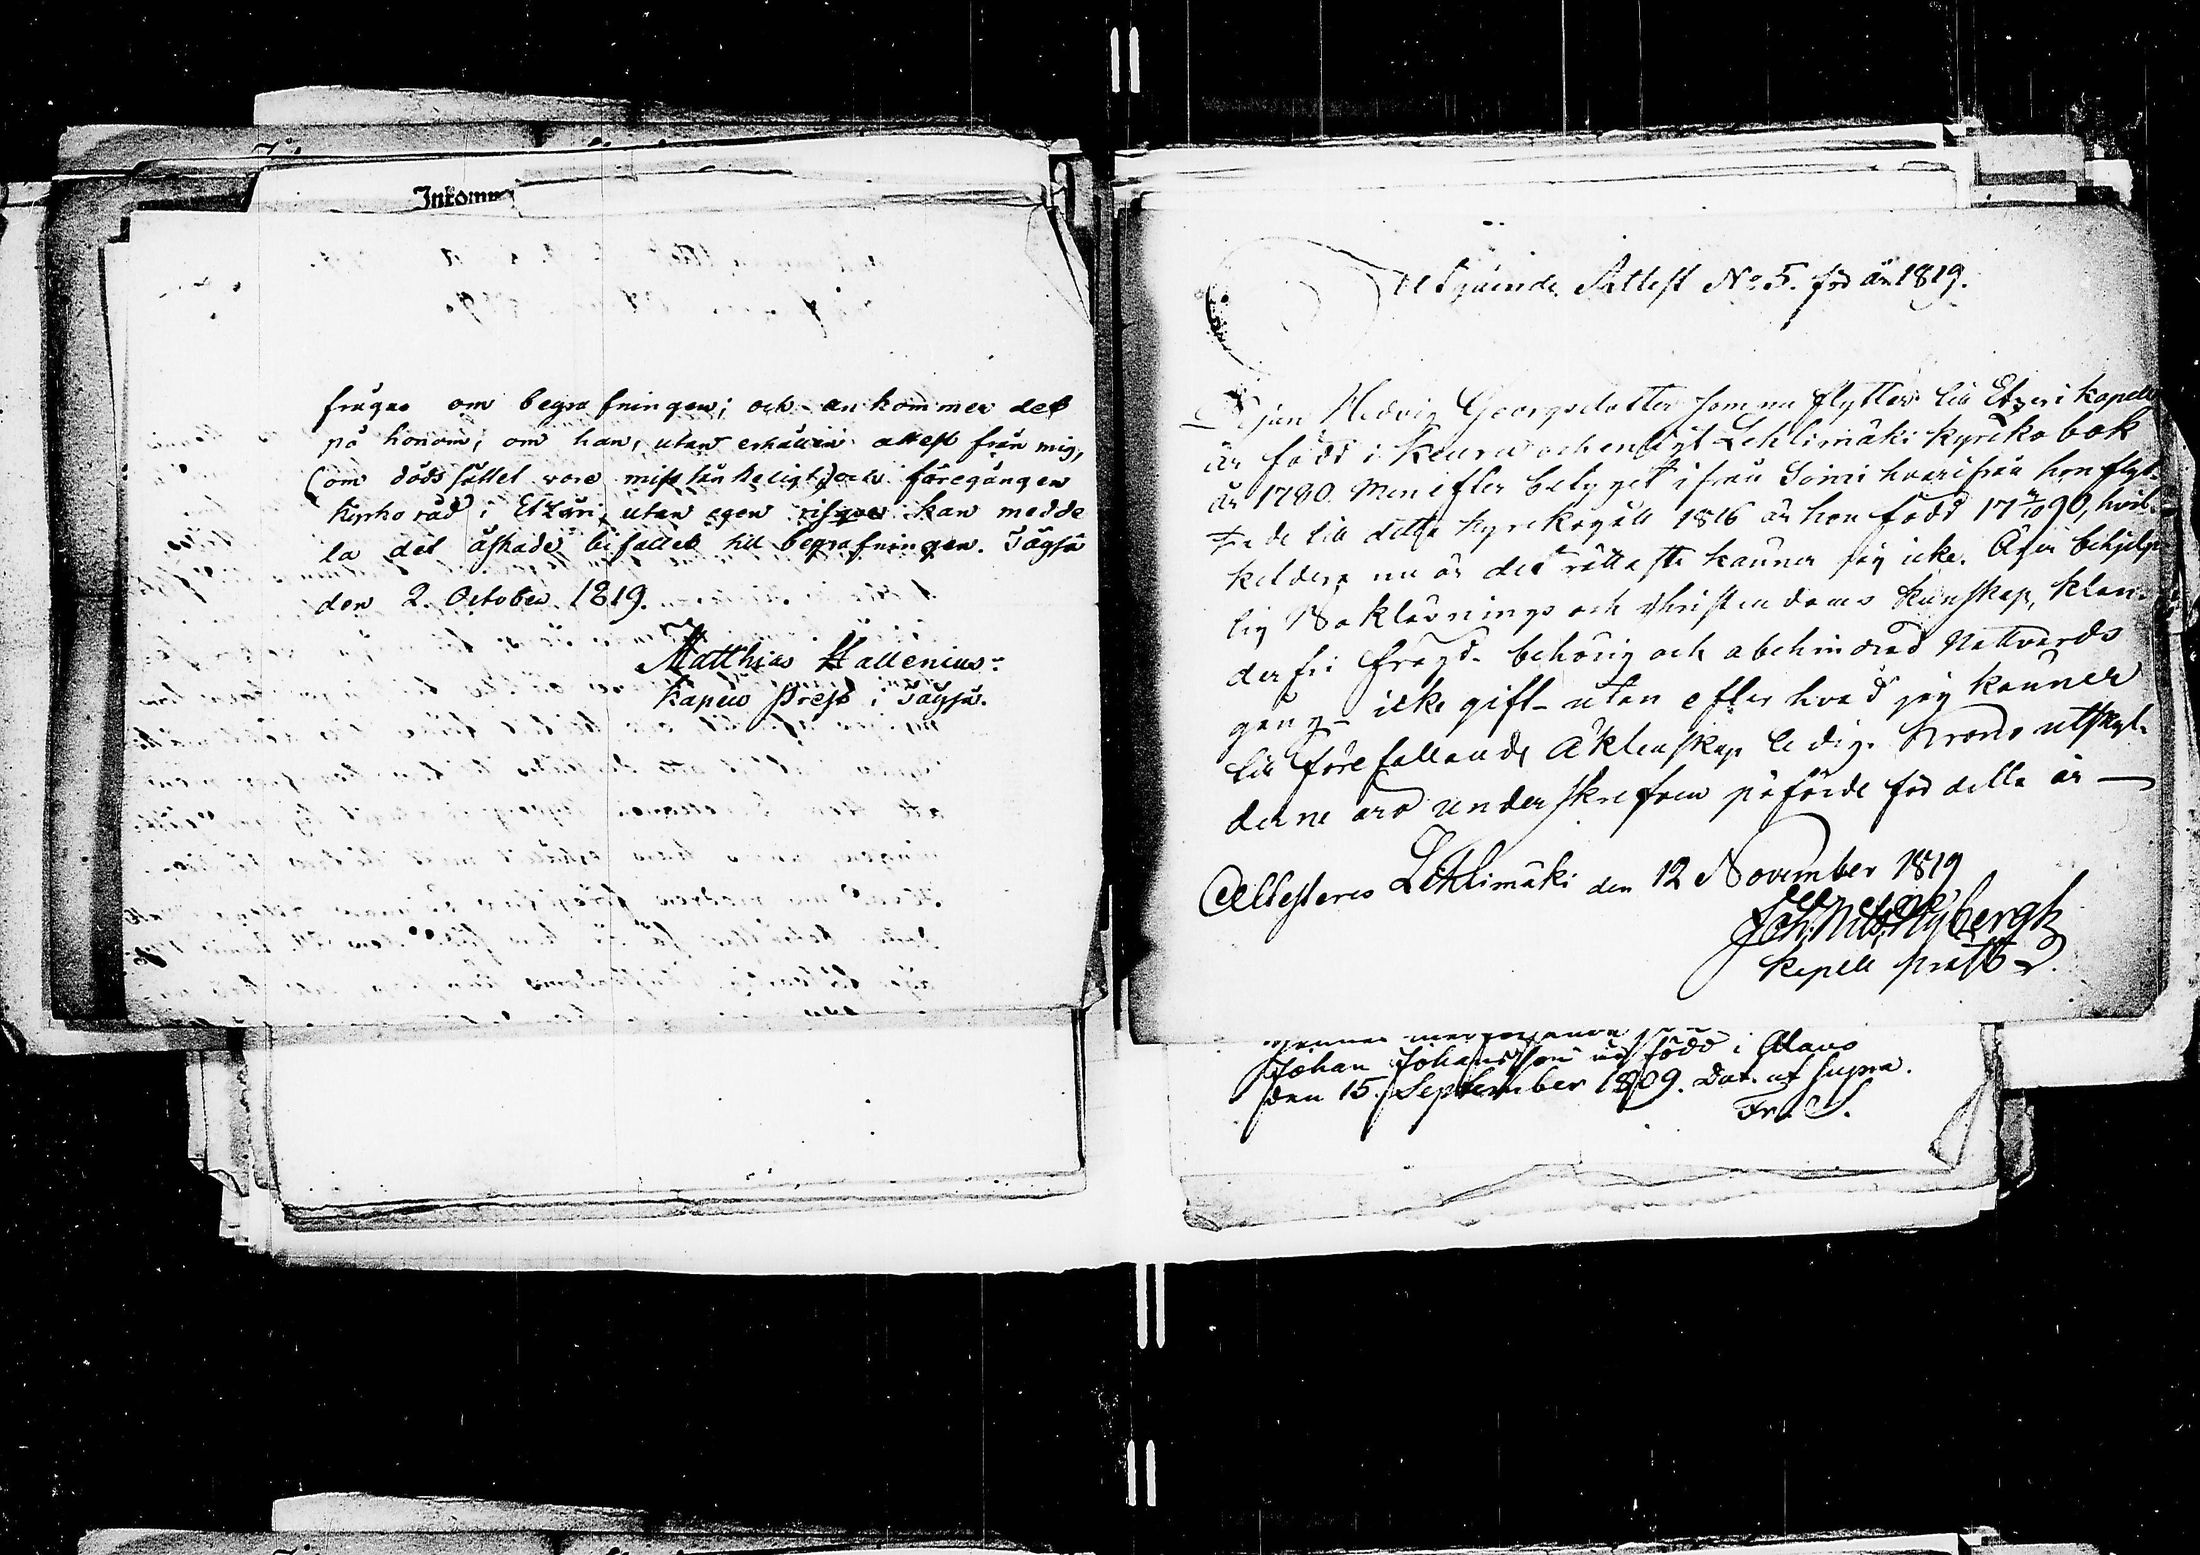 Inkomm
frågas om begrafningen; och ankommer det
på honom, om han, utan erhållen attest från mig,
(om dödssättet vore misstänkeligt) och föregången
kyrkoråd i Etzäri, utan egen risque kan medde
la det äskade bifallet till begrafningen. Tägsä
den 2 October 1819.
Matthias Hallenius
Kapell Prest i Tägsä.
Utgående Attest No 5. för år 1819.
Pigan Hedvig Georgsdotter som nu flytter till Etzeri kapell
är född i Keuru och enligt Lehtimäki kyrko bok
år 1780. Men efter betyget ifrån Soini hvarifrån hon flyt-
tade till detta kyrkogäll 1816 är hon född 1790, hvil-
kendera nu är det rättaste känner jag icke. Äger behjelp-
lig Boklövnings och Christendoms kunskap, klan-
derfri frägd. behörig och obehindrad Nattvards
gång - icke gift - utan efter hvad jag känner
till förefallande Äktenskap ledig. Krono utskyl-
derne äro underskrefven påförde för detta år —
Attesteras Lehtimäki den 12 November 1819
Joh. Nils. Nybergh
Kapell prest
Johan Johansson är född i Alavo
den 15 September 1809. Dat. ut supra.
Fr. S.